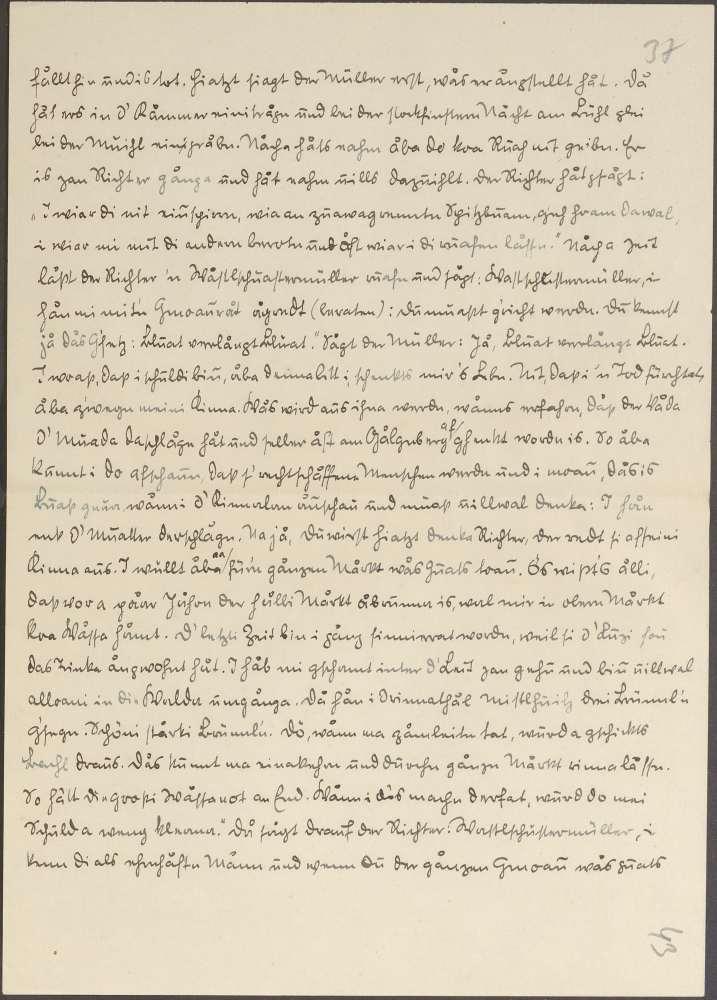 37
fållt hin und is tot. Hiatzt siagt der Müller erst, wås er ångstellt håt. Då
håt ers in d' Kåmmer einiträgn und bei der stockfinstern Nåcht am Bühl glei
bei der Muihl eingråbn. Nåcha håts eahm åba do koa Ruah nit gebn. Er
is zan Richter gånga und håt eahm ålls dazuihlt. Der Richter håt gsågt:
„I wiar di nit einspirrn, wia an zuawagrennten Spitzbuam, geh hoam dawal,
i wiar mi mit di andern berotn und åft wiar i di ruafn låssn." Nåcha Zeit
låßt der Richter 'n Wastlschuastermüller ruafn und sågt: Wastlschustermüller, i
hån mi mitn Gmoanråt ågredt (beraten): du muaßt gricht werdn. Du kennst
jå dås Gsetz: Bluat verlångt Bluat." Sågt der Müller: Jå, Bluat verlångt Bluat.
I woaß, daß i schuldi bin, åba deina bitt i, schenkts mir 's Lebn. Nit, daß i 'n Tod fürchtat,
åba zwegn meini Kinna. Wås wird aus ihna werdn, wånns erfahrn, dåß der Våda
d' Muada daschlågn håt und selber åft am Gålgnberg aufghenkt wordn is. So åba
kunnt i do afschaun, daß s' rechtschåffene Menschen werdn und i moan, dås is
Buaß gnua, wånn i d' Kinnalan ånschau und muaß ållwal denka: I hån
enk d' Muatter derschlågn. Na jå, du wirst hiatzt denka Richter, der redt si af seini
Kinna aus. I wullt åba aa für'n gånzn Mårkt wås Guats toan. Ös wißt's ålli,
daß vor a påar Johrn der hålbi Mårkt åbrunna is, wal mir in obern Mårkt
koa Wåssa håmt. D' letzti Zeit bin i gånz sinnierat wordn, weil si d' Luzi so
das Trinka ångwohnt håt. I håb mi gschamt unter d' Leut zan gehn und bin ållwal
alloani in die Walder umgånga. Då hån i drinnat hål drei Brünnl'n
gsegn. Schöni stårki Brünnl'n. Dö, wånn ma zåmleitn tat, wurd a gschickts
Bachl draus. Dås kunnt ma einakehrn und durchn gånzn Mårkt rinna låssn.
So hätt die großi Wåssanot an End. Wånn i dös machn derfat, wurd do mei
Schuld a weng kleaner." Då sågt drauf der Richter: Wastlschustermüller, i
kenn di als ehrnhåftn Månn und wenn du der gånzen Gmoan wås guats
43